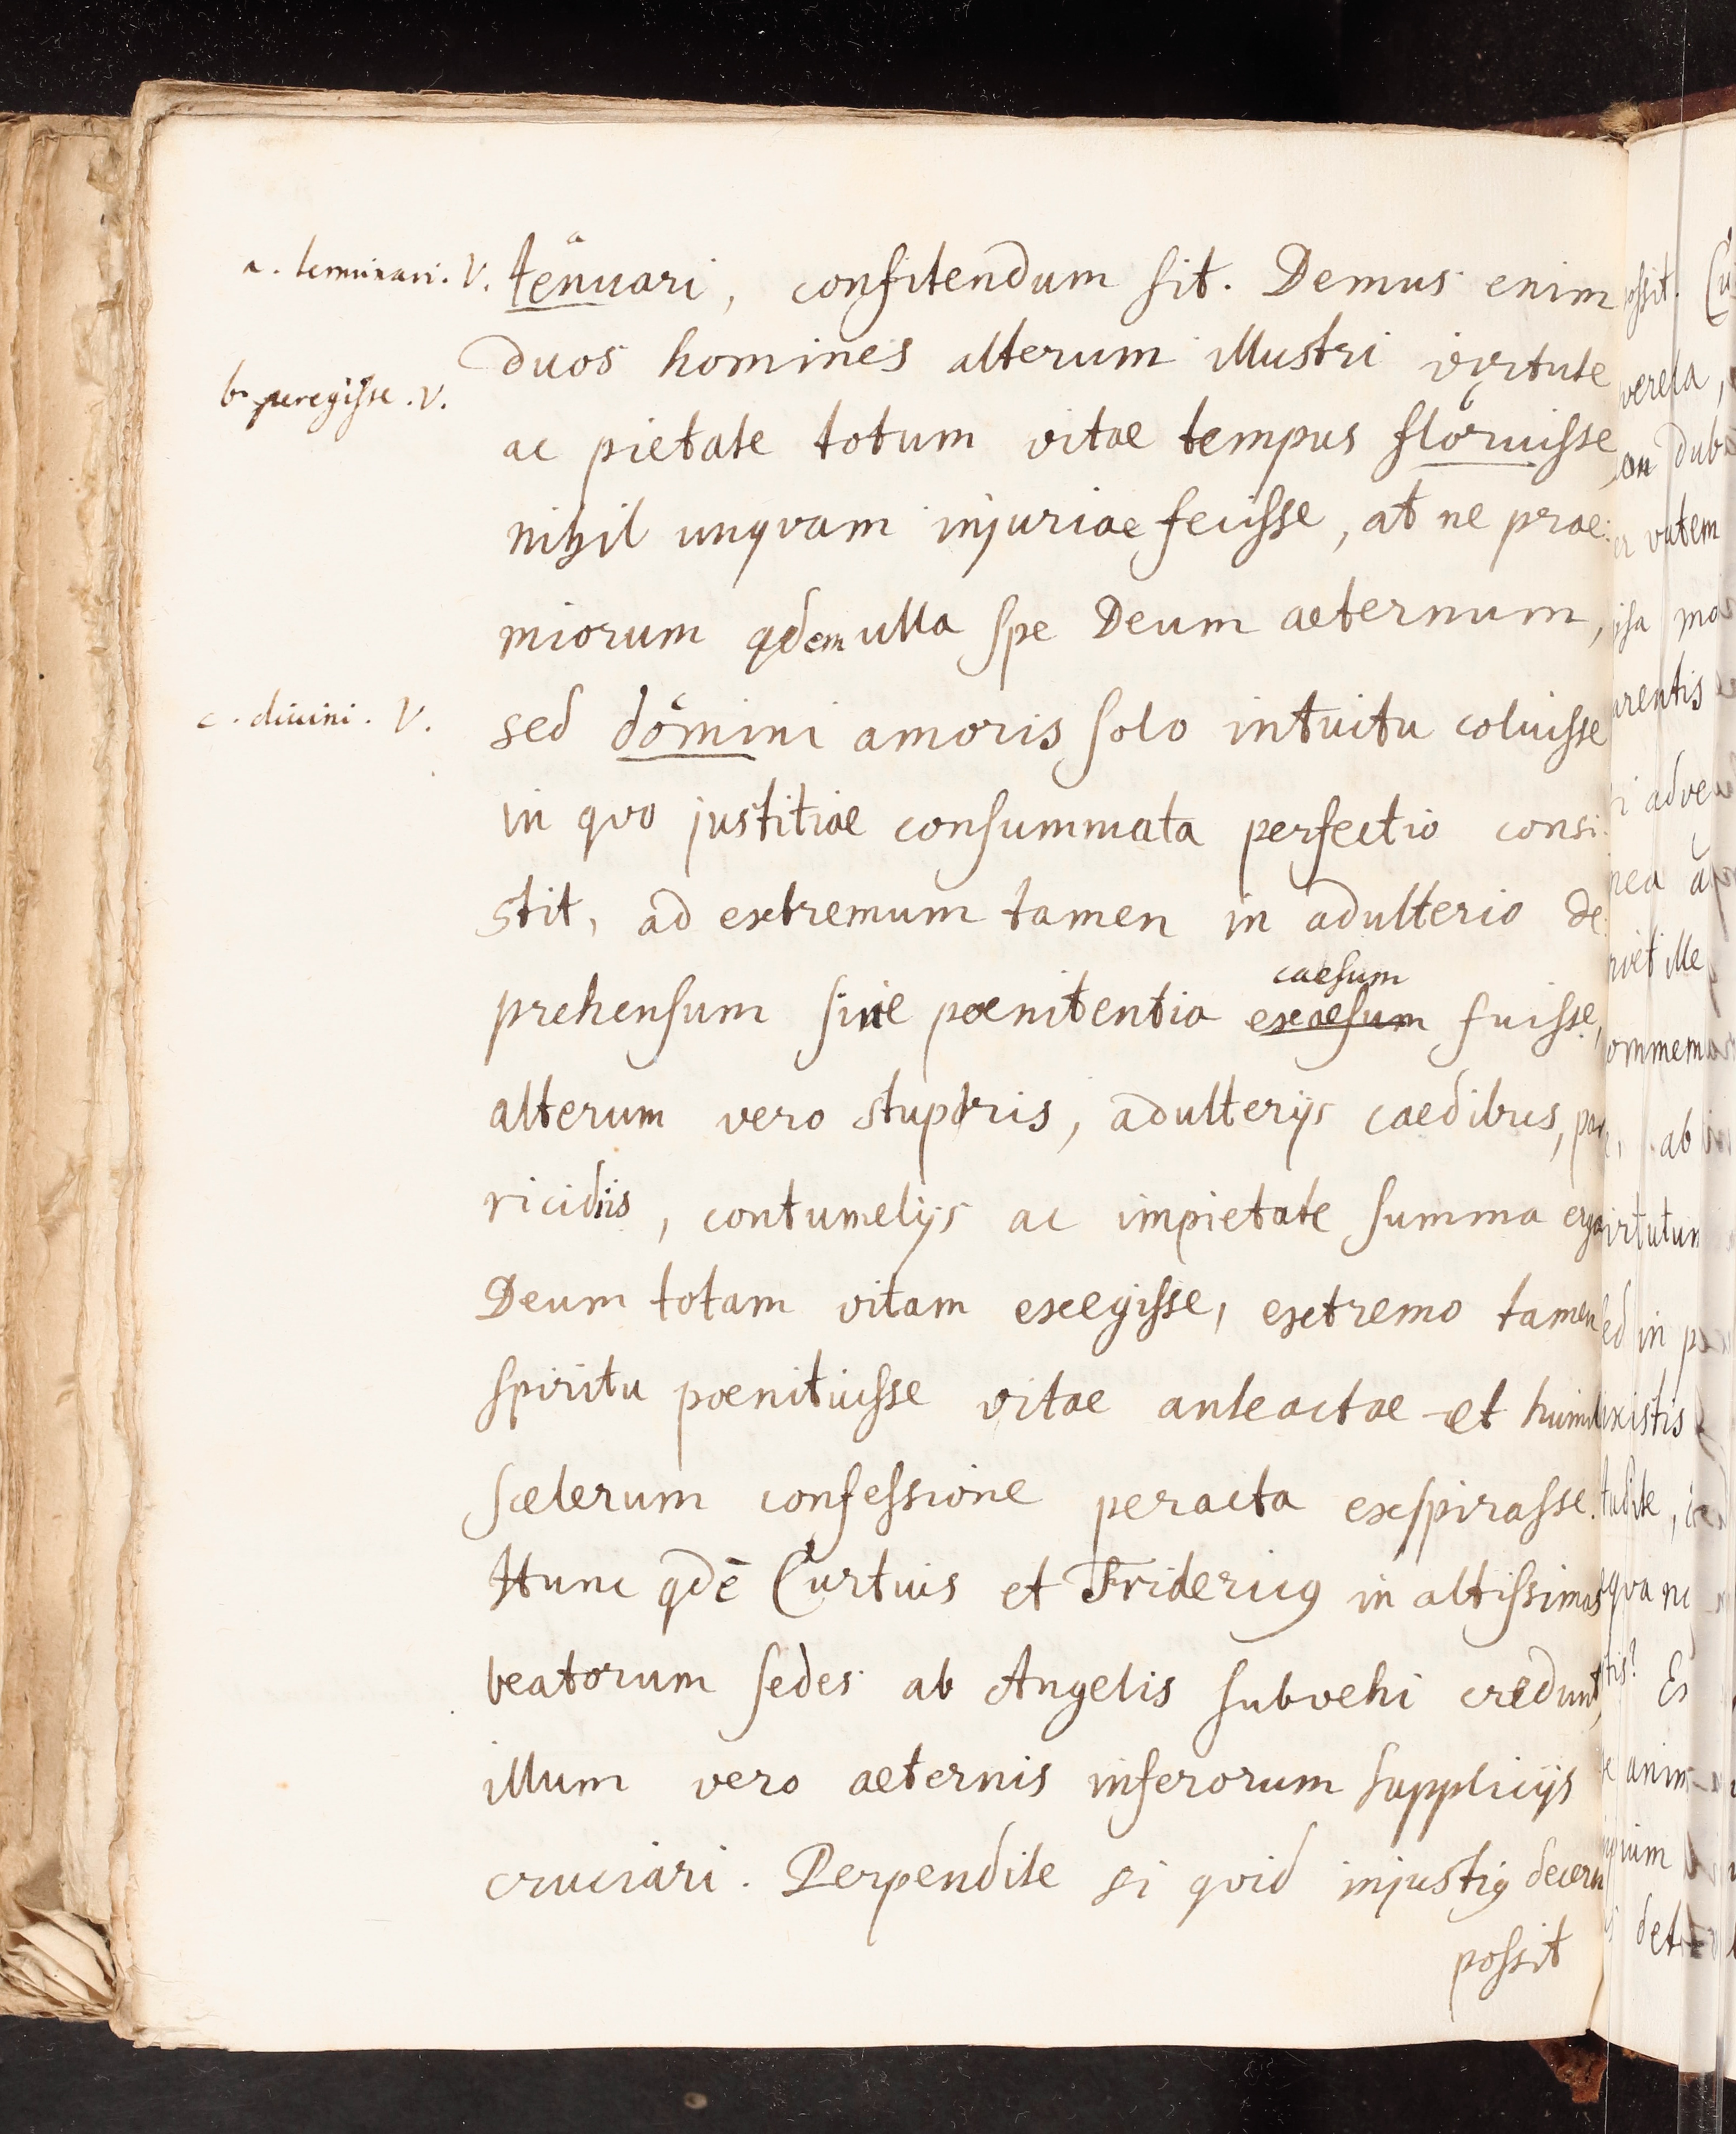 a. terminari. V.
tenuari, confitendum sit. Demus enim
duos homines alterum illustri virtute
b. peregisse. V.
ac pietate totum vitae tempus floruisse
nihil unqvam injuriae fecisse, at ne prae:
miorum qdem ulla spe Deum aeternum,
c. divini. V.
sed domini amoris solo intuitu coluisse
in qvo justitiae consummata perfectio consi:
stit, ad extremum tamen in adulterio de:
caesum
prehensum sine poenitentia excaesum fuisse,
alterum vero stupris, adulterijs caedibus, par
ricidiis, contumelijs ac impietate summa erga
Deum totam vitam exegisse, extremo tamen
spiritu poenituisse vitae anteactae et humil
scelerum confessione peracta exspirasse.
Hunc qdē Curtius et Fridericus in altissimas
beatorum sedes ab Angelis subvehi credunt,
illum vero aeternis inferorum supplicijs
cruciari. Perpendite si qvid injustius decern
possit
ossit.
vereta,
an dub
vatem
isa
arentis
adve
nea
ille
ommem
ab
irtutum
ed in
existis
qva
tis? Es
anim